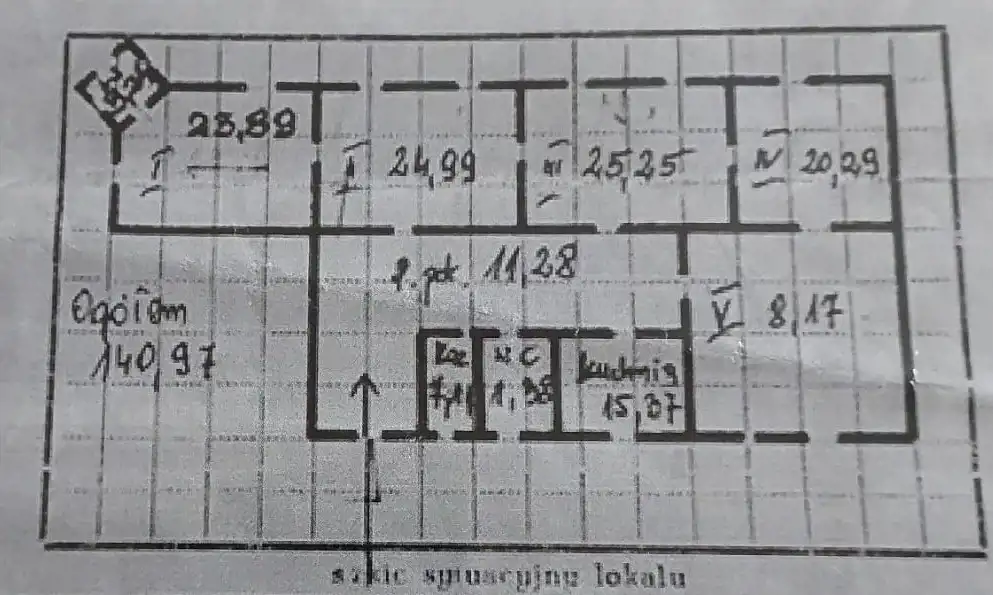 I 23,89
II 24,99
III 25,25
IV 20,29
p. pok. 11,28
V 8,17
Ogółem
140,97
Łaz
7,11
WC
1,38
kuchnia
15,37
szkic sytuacyjny lokalu